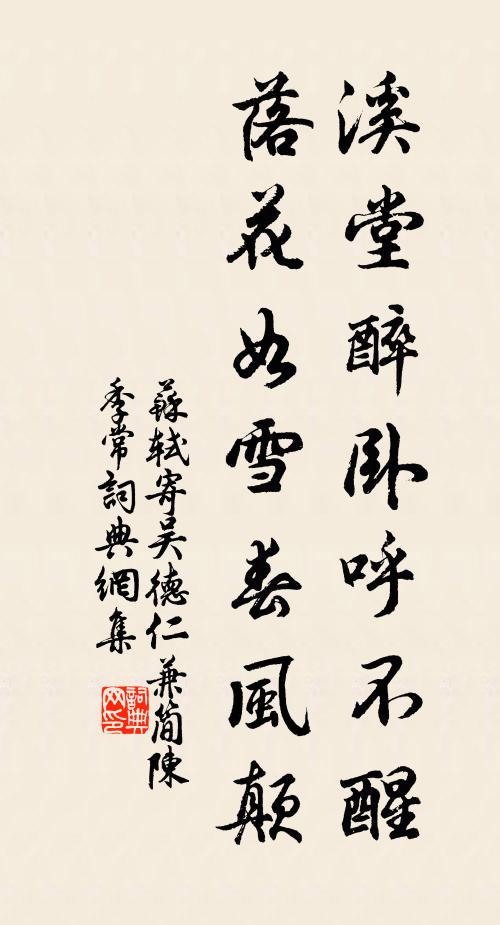 溪堂醉臥呼不醒
落花如雪春風顛
蘇軾寄吴德仁兼簡陳
季常詞典網集
詞典網印